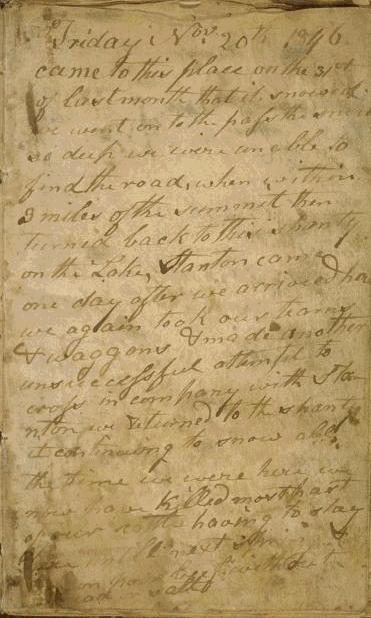 Friday Nov. 20th 1846
came to this place on the 31st
of last month that it snowed
we went on to the pass the snow
so deep we were unable to
find the road, when within
3 miles of the summit then
turned back to this shanty
on the Lake, Stanton came
one day after we arrived here
we again took our teams
& waggons & made another
unsuccessful attempt to
cross in company with Sta-
nton we returned to the shanty
it continuing to snow all
the time we were here we
now have killed most part
of our cattle having to stay
here untill next
without